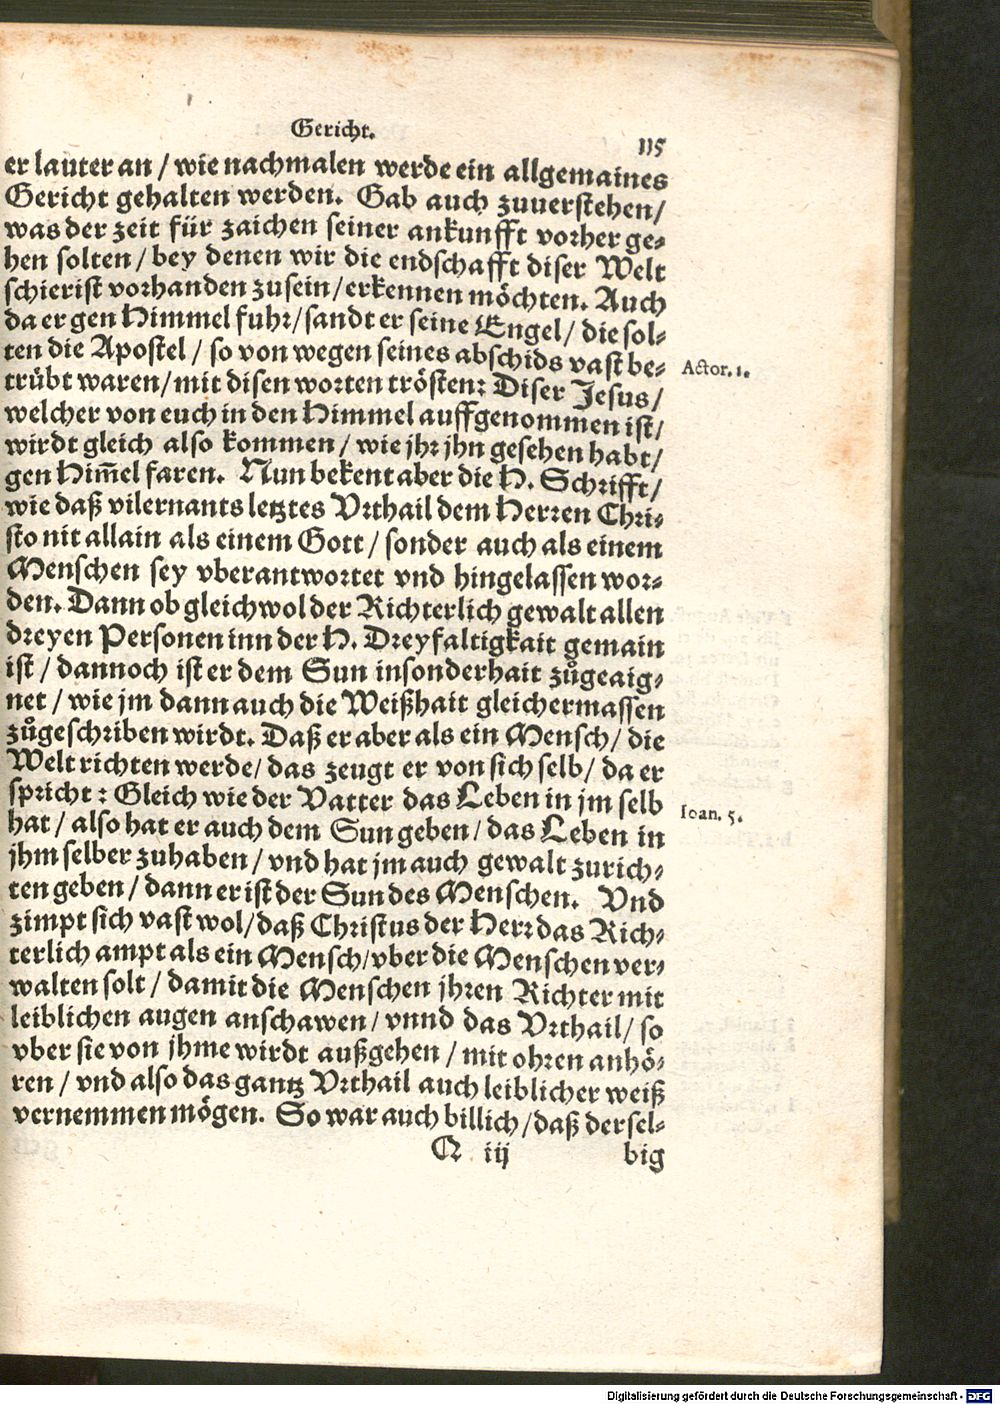 Gericht.
115
er lauter an / wie nachmalen werde ein allgemaines
Gericht gehalten werden. Gab auch zuuerstehen/
was der zeit für zaichen seiner ankunfft vorher ge-
hen solten / bey denen wir die endschafft diser Welt
schierist vorhanden zu sein / erkennen möchten. Auch
da er gen Himmel fuhr / sandt er seine Engel / die sol-
ten die Apostel / so von wegen seines abschids vast be-
Actor. 1.
trübt waren / mit disen worten trösten: Diser Jesus /
welcher von euch in den Himmel auffgenommen ist /
wirdt gleich also kommen / wie jhr jhn gesehen habt /
gen Him̃el faren. Nun bekent aber die H. Schrifft /
wie daß vilernants letztes Vrthail dem Herren Chri-
sto nit allain als einem Gott / sonder auch als einem
Menschen sey vberantwortet vnd hingelassen wor-
den. Dann ob gleichwol der Richterlich gewalt allen
dreyen Personen inn der H. Dreyfaltigkait gemain
ist / dannoch ist er dem Sun insonderhait zůgeaig-
net / wie jm dann auch die Weißhait gleichermassen
zůgeschriben wirdt. Daß er aber als ein Mensch / die
Welt richten werde / das zeugt er von sich selb / da er
spricht: Gleich wie der Vatter das Leben in jm selb
Ioan. 5.
hat / also hat er auch dem Sun geben / das Leben in
jhm selber zuhaben / vnd hat jm auch gewalt zurich-
ten geben / dann er ist der Sun des Menschen. Vnd
zimpt sich vast wol / daß Christus der Herr das Rich-
terlich ampt als ein Mensch / vber die Menschen ver-
walten solt / damit die Menschen jhren Richter mit
leiblichen augen anschawen / vnnd das Vrthail / so
vber sie von jhme wirdt außgehen / mit ohren anhö-
ren / vnd also das gantz Vrthail auch leiblicher weiß
vernemmen mögen. So war auch billich / daß dersel-
Q iij big
Digitalisierung gefördert durch die Deutsche Forschungsgemeinschaft - DFG